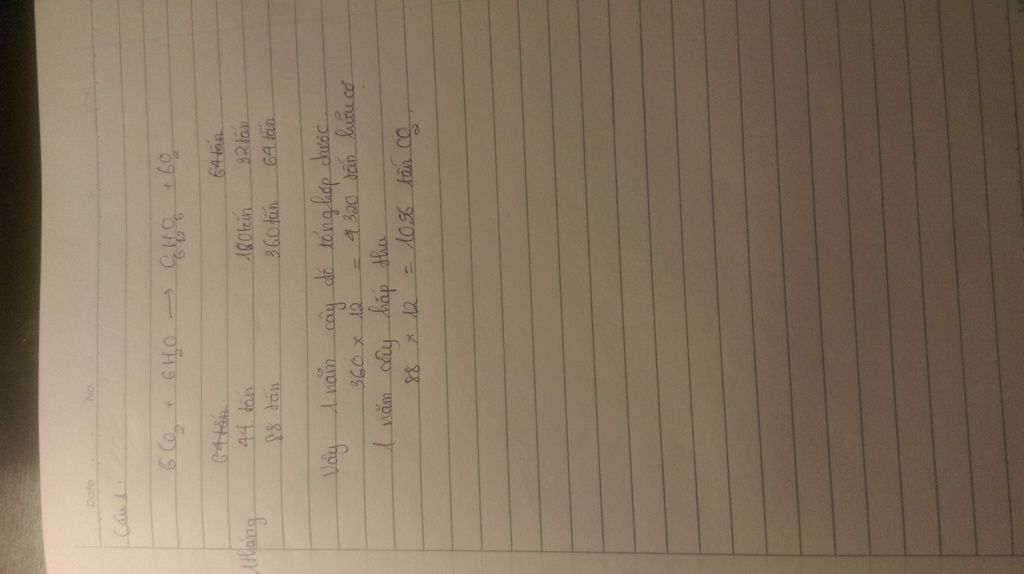 Date . . No.
Câu 1.
6CO2 + 6H2O → C6H12O6 + 6O2
64 tấn 64 tấn
1 tháng 44 tấn 180 tấn 32 tấn
88 tấn 360 tấn 64 tấn
Vậy 1 năm cây đó tổng hợp được
360 x 12 = 4320 tấn hữu cơ
1 năm cây hấp thu
88 x 12 = 1056 tấn CO2